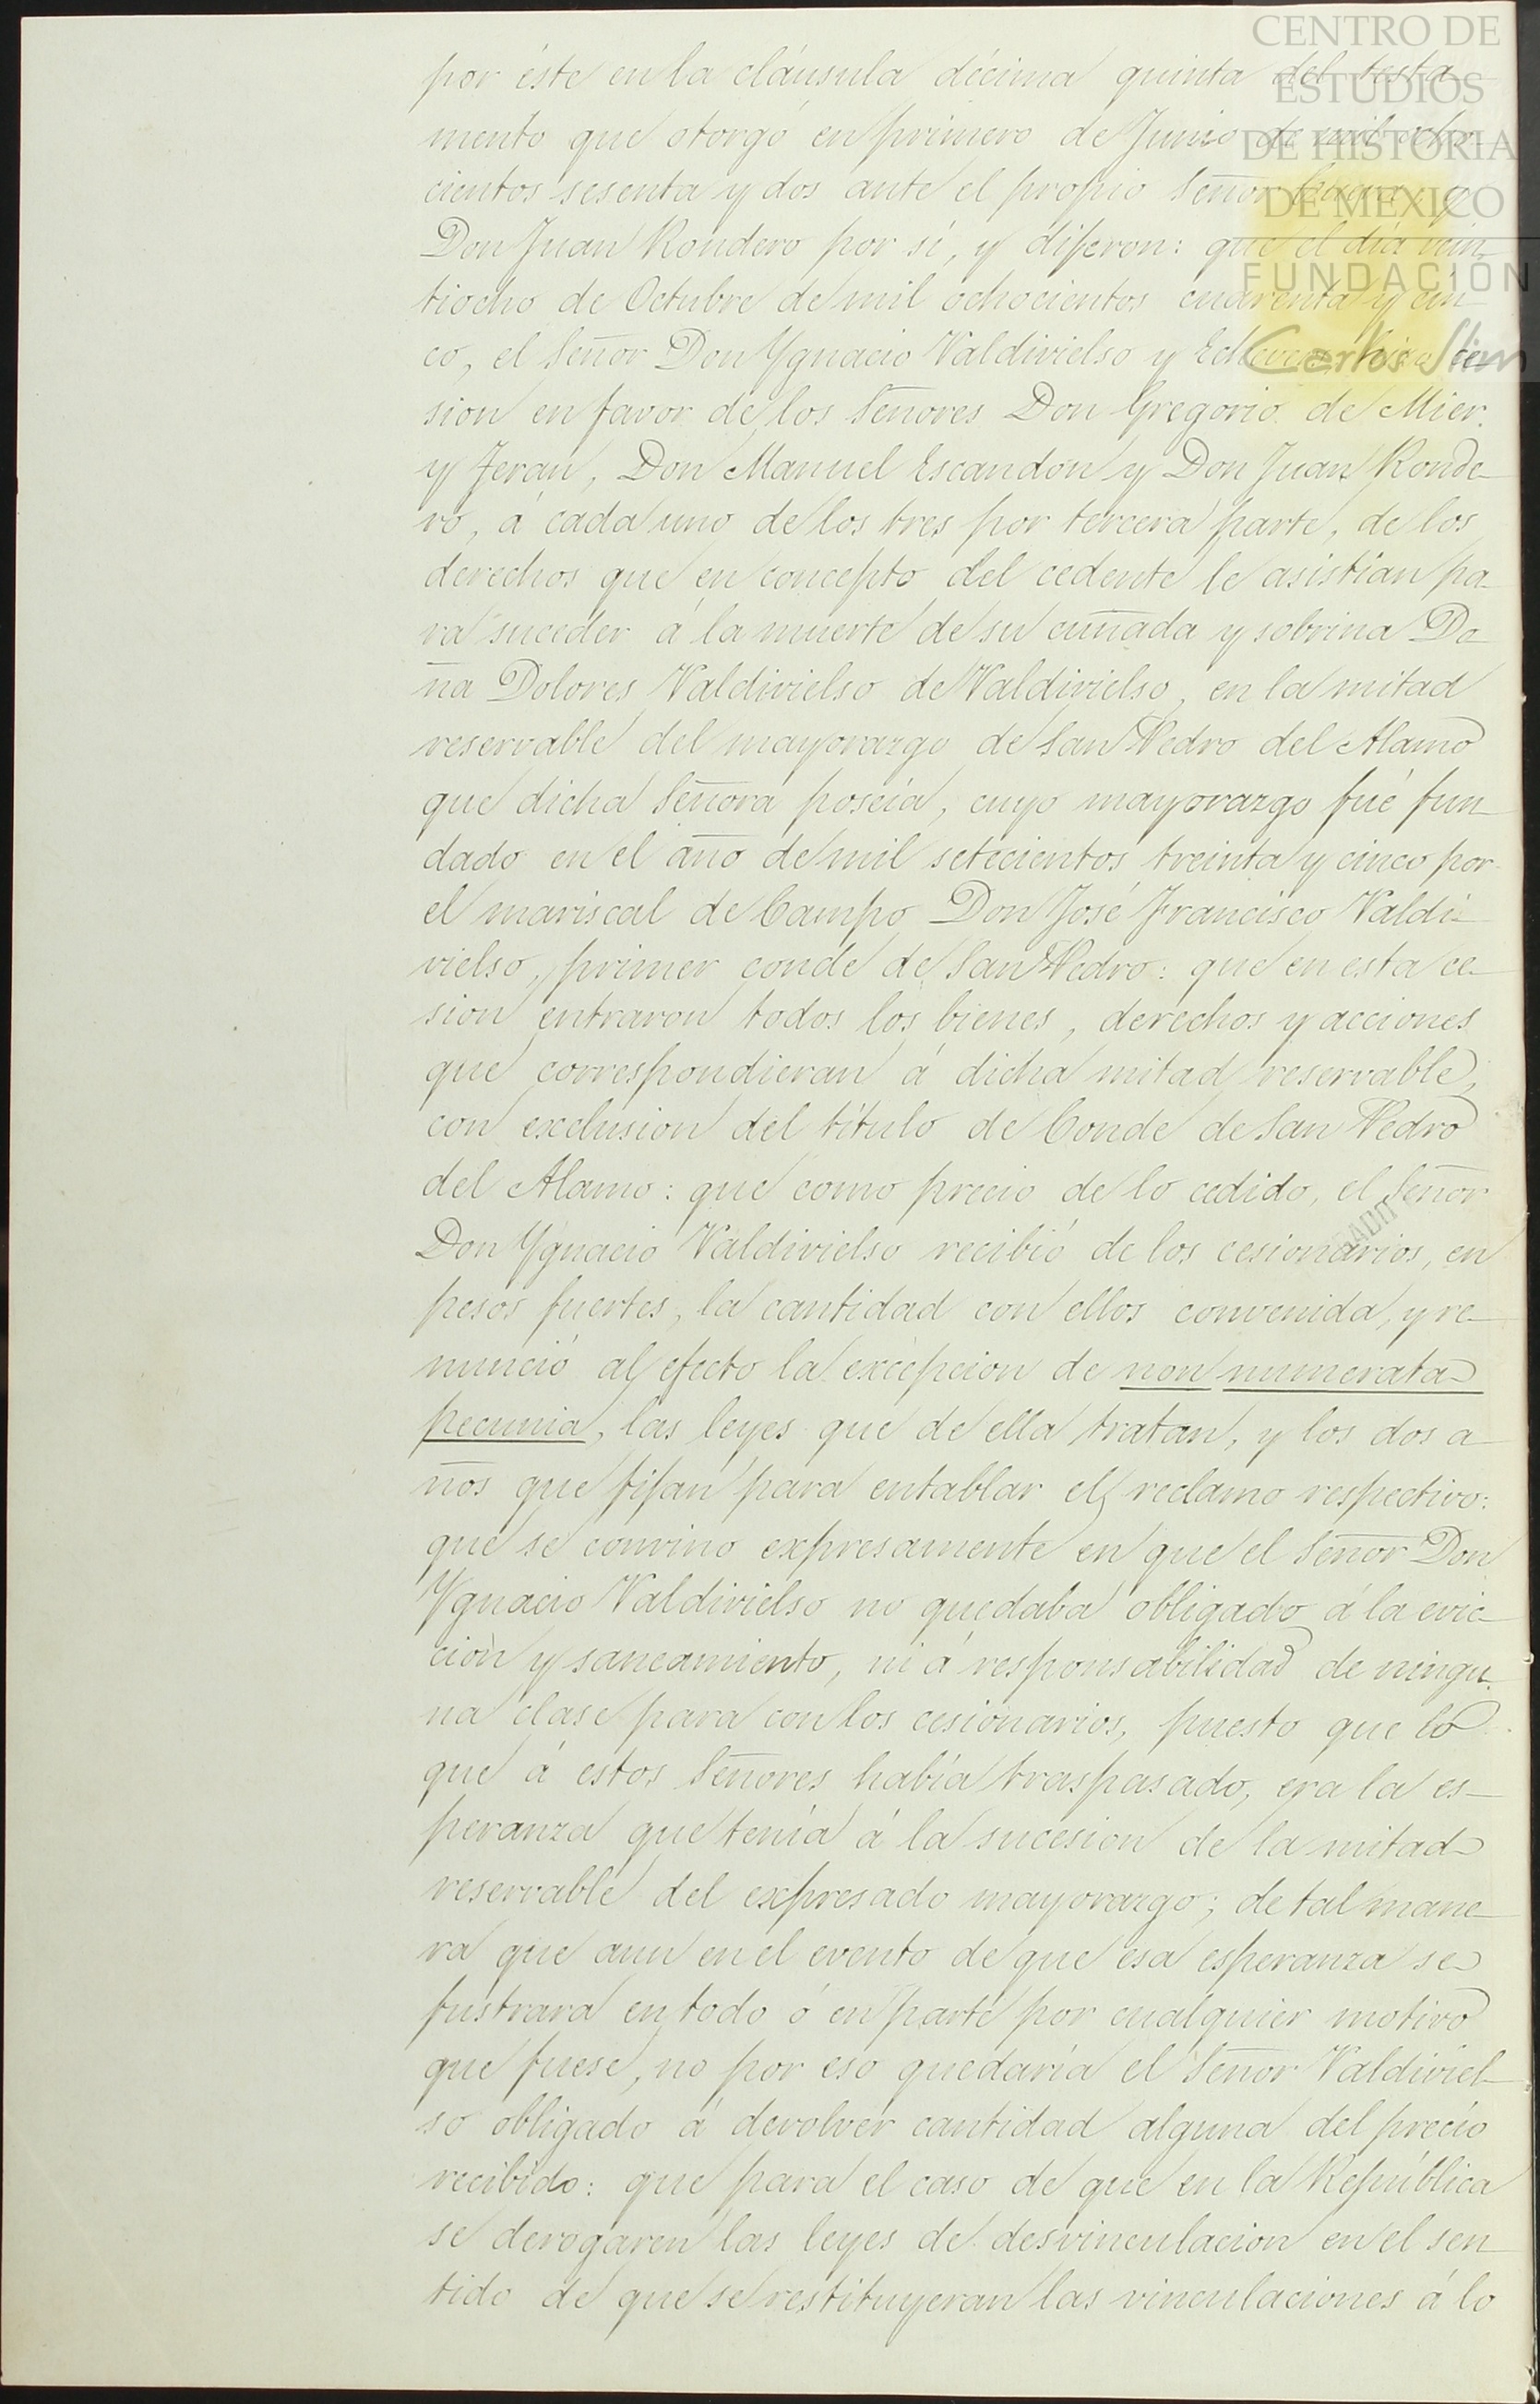 CENTRO DE
ESTUDIOS
DE HISTORIA
DE MEXICO
FUNDACIÓN
Carlos Slim
por éste en la cláusula décima quinta del testa-
mento que otorgó en primero de Junio de mil ocho-
cientos sesenta y dos ante el propio Señor y
Don Juan Rondero por sí, y dijeron: que el día vein-
tiocho de Octubre de mil ochocientos cuarenta y cin-
co, el Señor Don Ygnacio Valdivielso y hizo ce-
sion en favor de los Señores Don Gregorio de Mier
y Terán, Don Manuel Escandon y Don Juan Ronde-
ro, á cada uno de los tres por tercera parte, de los
derechos que en concepto del cedente le asistian pa-
ra suceder á la muerte de su cuñada y sobrina Do-
ña Dolores Valdivielso de Valdivielso, en la mitad
reservable del mayorazgo de San Pedro del Alamo
que dicha Señora poseía, cuyo mayorazgo fué fun-
dado en el año de mil setecientos treinta y cinco por
el mariscal de Campo Don José Francisco Valdi-
vielso, primer conde de San Pedro: que en esta ce-
sion entraron todos los bienes, derechos y acciones
que correspondieran á dicha mitad reservable,
con exclusion del título de Conde de San Pedro
del Alamo: que como precio de lo cedido, el Señor
Don Ygnacio Valdivielso recibió de los cesionarios, en
pesos fuertes, la cantidad con ellos convenida, y re-
nunció al efecto la excepcion de non numerata
pecunia, las leyes que de ella tratan, y los dos a-
ños que fijan para entablar el reclamo respectivo:
que se convino expresamente en que el Señor Don
Ygnacio Valdivielso no quedaba obligado á la evic-
ción y saneamiento, ni á responsabilidad de ningu-
na clase para con los cesionarios, puesto que lo
que á estos Señores había traspasado, era la es-
peranza que tenía á la sucesion de la mitad
reservable del expresado mayorazgo; de tal mane-
ra que aun en el evento de que esa esperanza se
fustrara en todo ó en parte por cualquier motivo
que fuese, no por eso quedaría el Señor Valdiviel-
so obligado á devolver cantidad alguna del precio
recibido: que para el caso de que en la República
se derogaren las leyes de desvinculacion en el sen-
tido de que se restituyeran las vinculaciones á lo